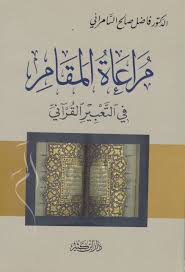 الدكتور فاضل صالح السامرائي
مُرَاعَاةُ المَقَامِ
فِي التَّعْبِيرِ القُرْآنِيِّ
دار ابن كثير